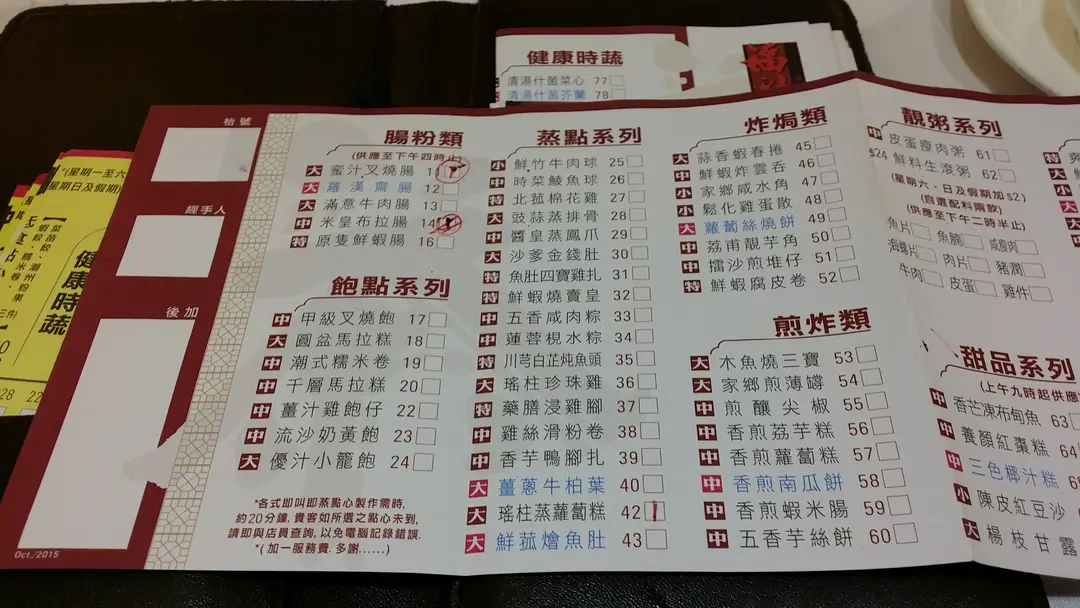 健康時蔬
清湯什菌菜心 77
清湯什菌芥蘭 78
*(星期一至六
*星期日及假期)
健康時蔬
枱號
經手人
後加
Oct./2015
腸粉類
(供應至下午四時止)
大 蜜汁叉燒腸 11
大 羅漢齋腸 12
大 滿意牛肉腸 13
中 米皇布拉腸 14
特 原隻鮮蝦腸 16
飽點系列
中 甲級叉燒飽 17
大 圓盆馬拉糕 18
中 潮式糯米卷 19
中 千層馬拉糕 20
中 薑汁雞飽仔 22
中 流沙奶黃飽 23
大 優汁小籠飽 24
*各式即叫即蒸點心製作需時,
約20分鐘, 貴客如所選之點心未到,
請即與店員查詢, 以免電腦記錄錯誤.
*( 加一服務費. 多謝......)
蒸點系列
小 鮮竹牛肉球 25
中 時菜鯪魚球 26
特 北菰棉花雞 27
大 豉蒜蒸排骨 28
中 醬皇蒸鳳爪 29
大 沙爹金錢肚 30
特 魚肚四寶雞扎 31
特 鮮蝦燒賣皇 32
中 五香咸肉粽 33
中 蓮蓉梘水粽 34
特 川芎白芷炖魚頭 35
大 瑤柱珍珠雞 36
特 藥膳浸雞腳 37
中 雞絲滑粉卷 38
中 香芋鴨腳扎 39
大 薑蔥牛柏葉 40
大 瑤柱蒸蘿蔔糕 42
大 鮮菰燴魚肚 43
炸焗類
大 蒜香蝦春捲 45
中 鮮蝦炸雲吞 46
小 家鄉咸水角 47
小 鬆化雞蛋散 48
大 蘿蔔絲燒餅 49
中 荔甫靚芋角 50
中 擂沙煎堆仔 51
特 鮮蝦腐皮卷 52
煎炸類
大 木魚燒三寶 53
大 家鄉煎薄罉 54
中 煎釀尖椒 55
中 香煎荔芋糕 56
中 香煎蘿蔔糕 57
中 香煎南瓜餅 58
中 香煎蝦米腸 59
中 五香芋絲餅 60
靚粥系列
中 皮蛋瘦肉粥 61
$24 鮮料生滾粥 62
(星期六、日及假期加$2)
(自選配料兩款)
(供應至下午二時半止)
魚片 魚腩 咸瘦肉
海螺片 肉片 豬潤
牛肉 皮蛋 雞件
甜品系列
(上午九時起供應
中 香芒凍布甸魚 63
中 養顏紅棗糕 64
中 三色椰汁糕
小 陳皮紅豆沙
大 楊枝甘露